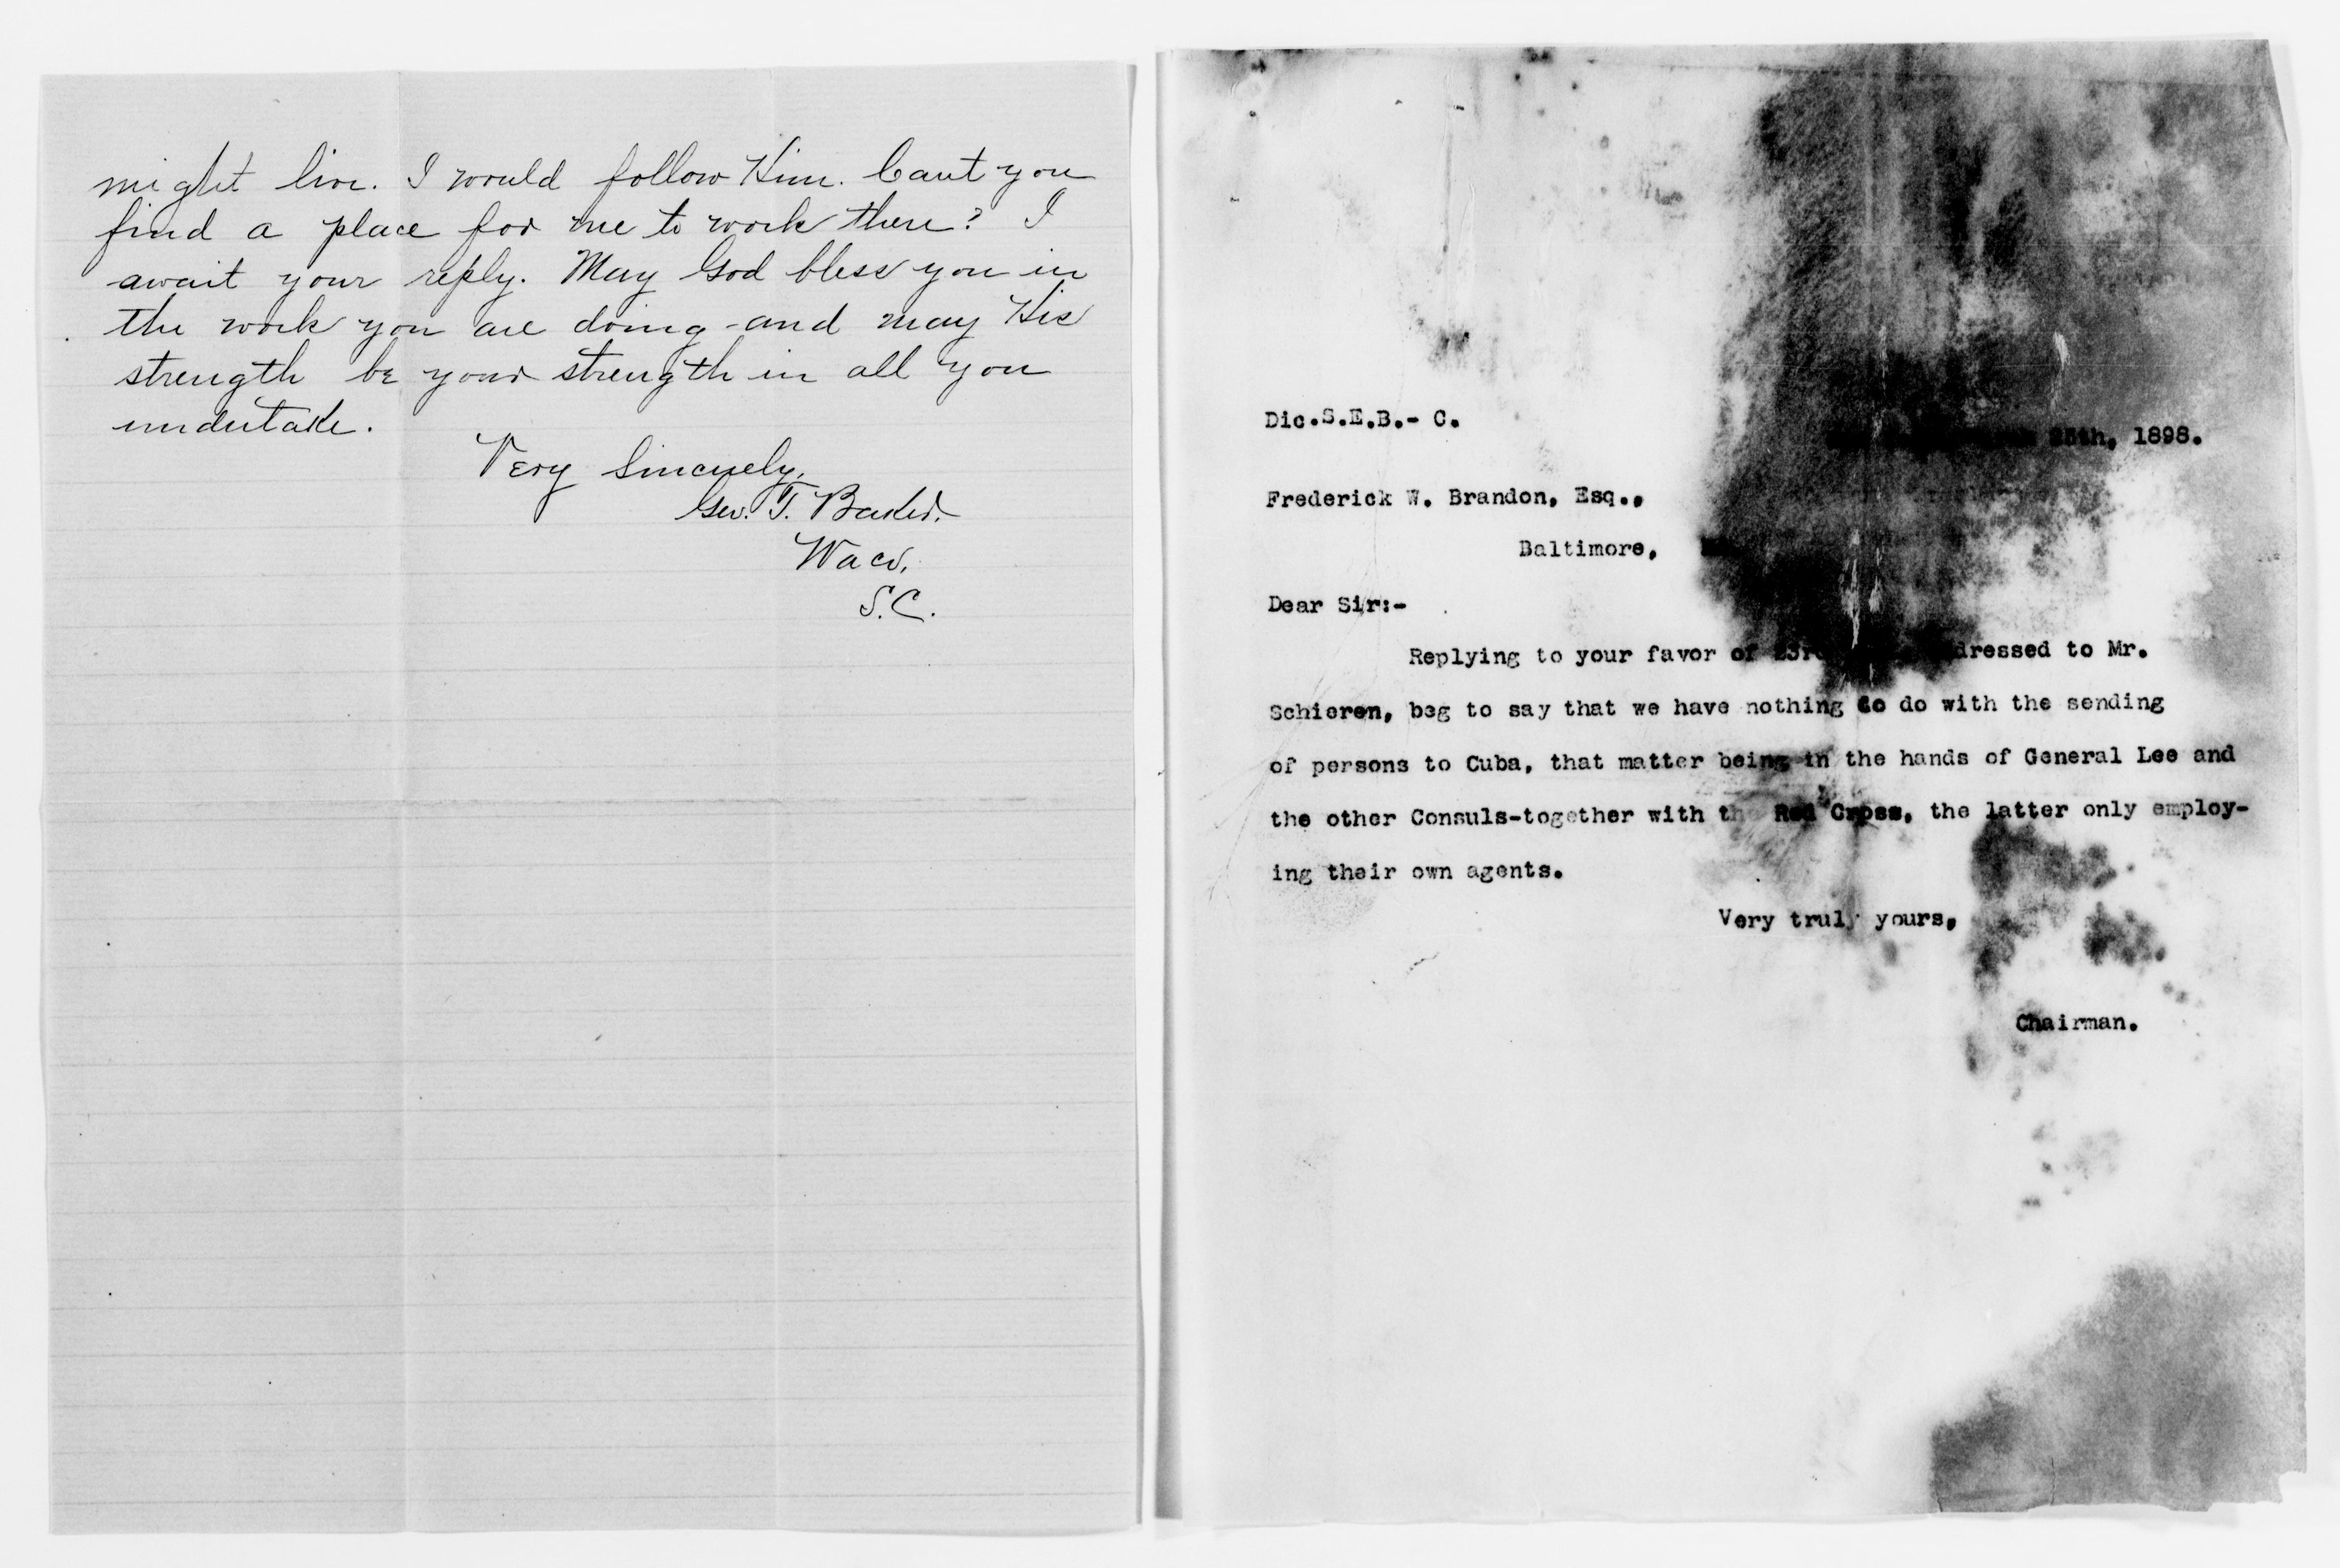 might live. I would follow Him. Cant you
find a place for me to work there? I
await your reply. May God bless you in
the work you are doing and may His
strength be your strength in all you
undertake.
Very Sincerely,
Geo. T. Baker.
Waco,
S.C.
Dic.S.E.B.- C.
25th, 1898.
Frederick W. Brandon, Esq.,
Baltimore,
Dear Sir:-
Replying to your favor of 23rd dressed to Mr.
Schieren, beg to say that we have nothing to do with the sending
of persons to Cuba, that matter being in the hands of General Lee and
the other Consuls-together with the Red Cross, the latter only employ-
ing their own agents.
Very truly yours,
Chairman.